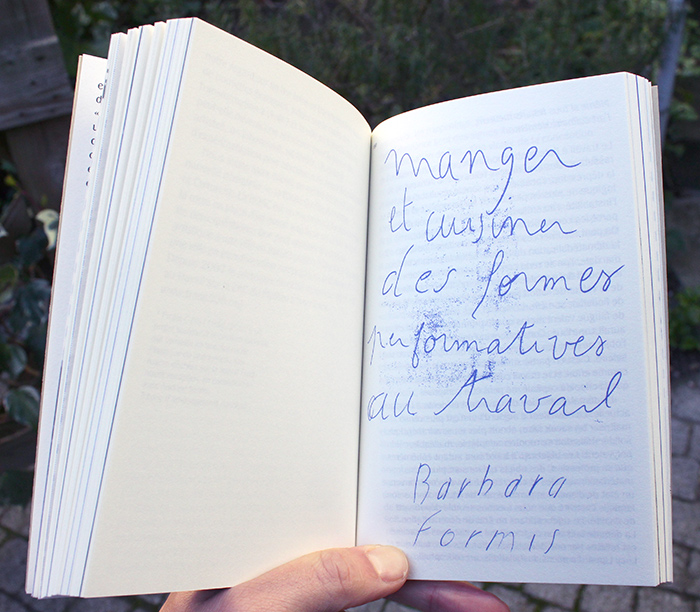 manger
et cuisiner
des formes
performatives
au travail
Barbara
Formis